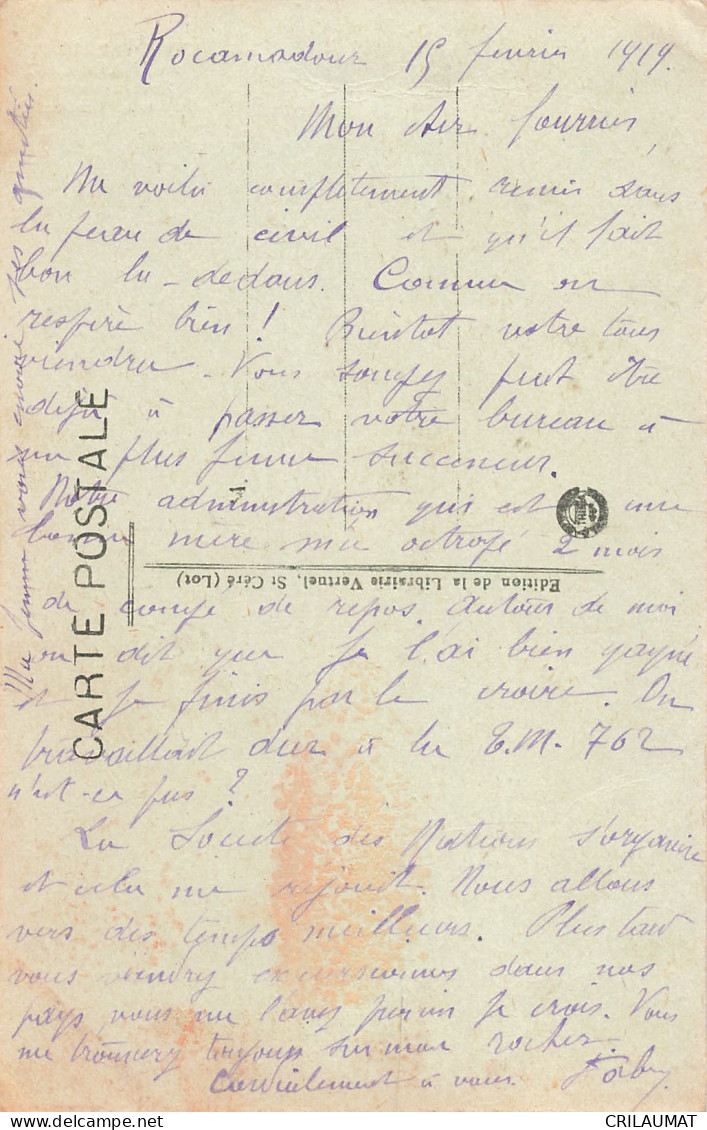 Rocamadour 15 fevrier 1919.
Mon cher Fourrier,
Me voilà complètement remis dans
la peau de civil et qu'il fait
bon la-dedans. Comme on
respire bien ! Bientot votre tour
viendra. Vous songez peut être
dejà à passer votre bureau à
un plus jeune successeur.
Notre administration qui est une
bonne mère m'a octroyé 2 mois
de congé de repos. Autour de moi
on dit que je l'ai bien gagné
et je finis par le croire. On
travaillait dur à la T.M. 762
n'est-ce pas ?
La Société des Nations s'organise
et cela me rejouit. Nous allons
vers des temps meilleurs. Plus tard
vous viendrez excursionner dans nos
pays, vous me l'avez promis je crois. Vous
me trouverez toujours sur mon rocher.
Cordialement à vous.
Ma femme vous envoie ses amitiés.
CARTE POSTALE
Edition de la Librairie Vertuel, St Céré (Lot)
CRILAUMAT